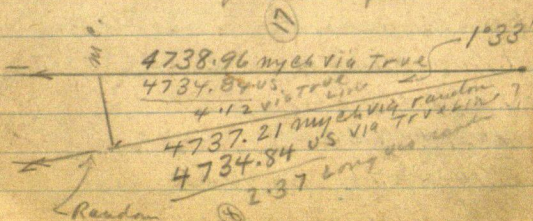 17
1°33'
M.C.
4738.96 my ch via True
4734.84 U.S. via True Line
4.12 via
4737.21 my ch via random
4734.84 U.S. via True Line
2.37 Long via random
Random